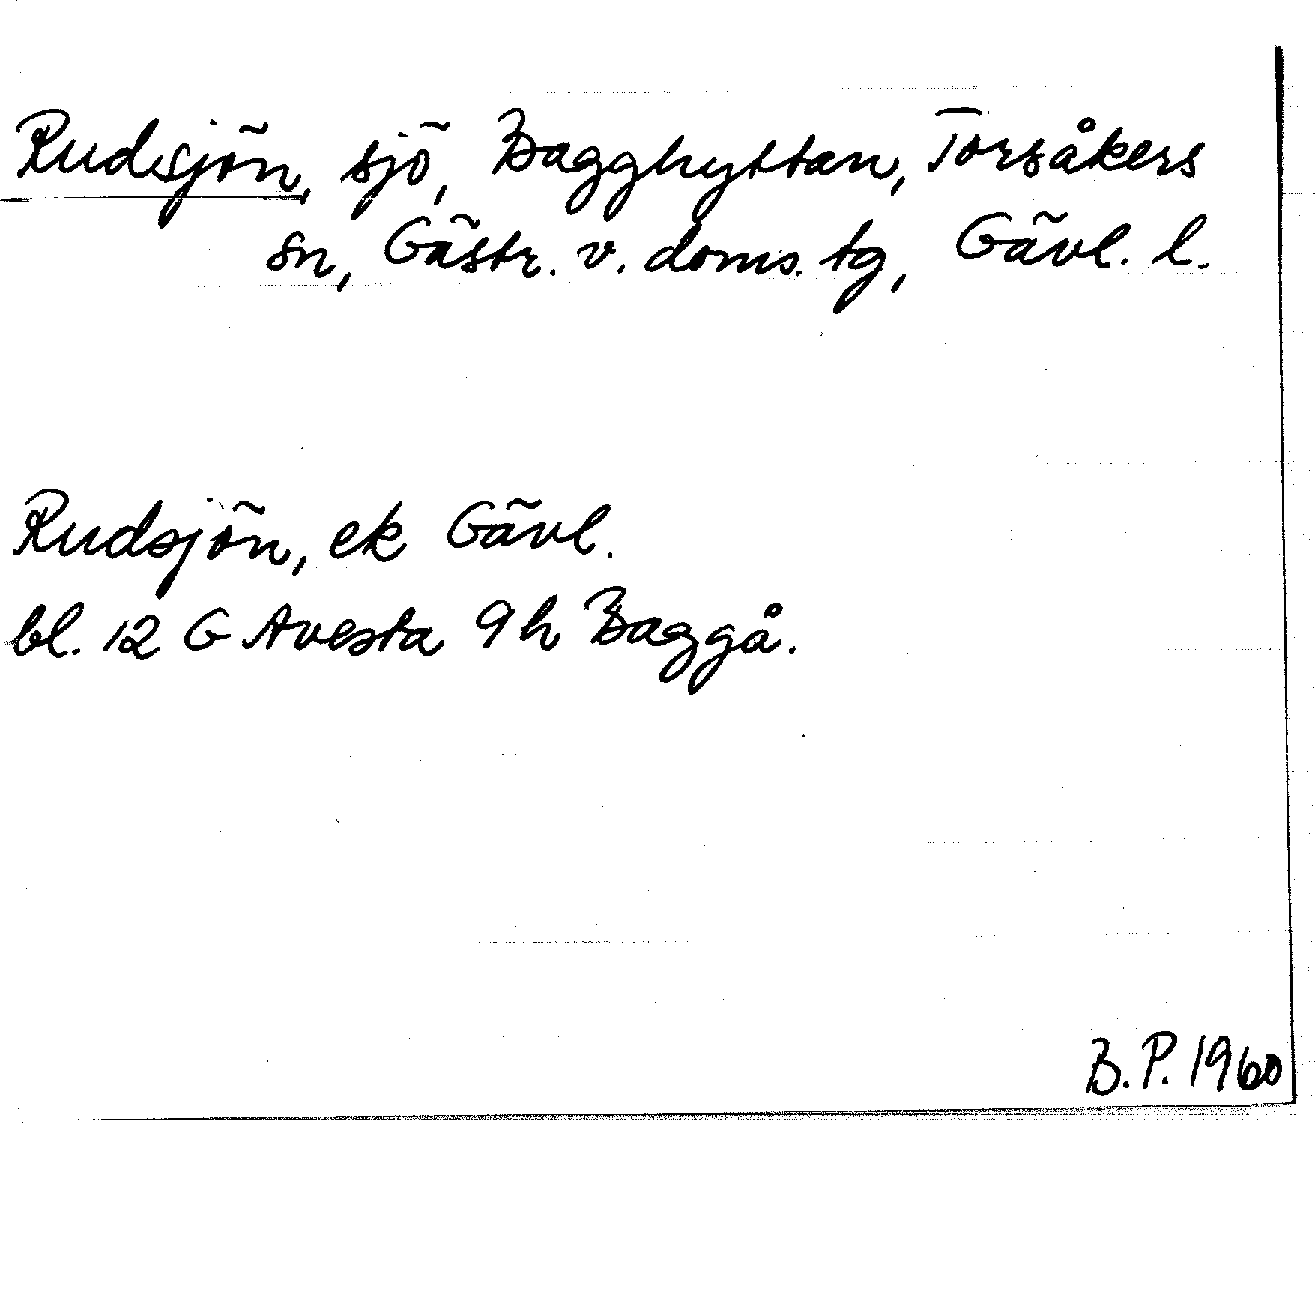 Rudsjön, sjö, Bagghyttan, Torsåkers
sn, Gästr. v. doms. tg, Gävl. l.
Rudsjön, ek Gävl.
bl. 12 G Avesta 9 h Baggå.
B. P. 1960